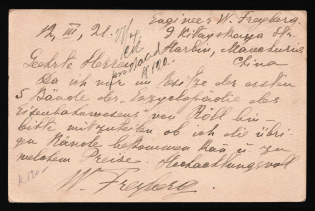 Engineer W. Freyberg.
12, III, 21. 9 Kitayskaya Str.
Harbin, Manchuria
Geehrte Herren China
K 120.
Da ich nur im Besitze der ersten
5 Bände der Encyclopädie des
Eisenbahnwesens von Röll bin
bitte mitzuteilen ob ich die übri-
gen Bände bekommen kann u. zu
welchem Preise. Hochachtungsvoll
W. Freyberg.
K 120.-